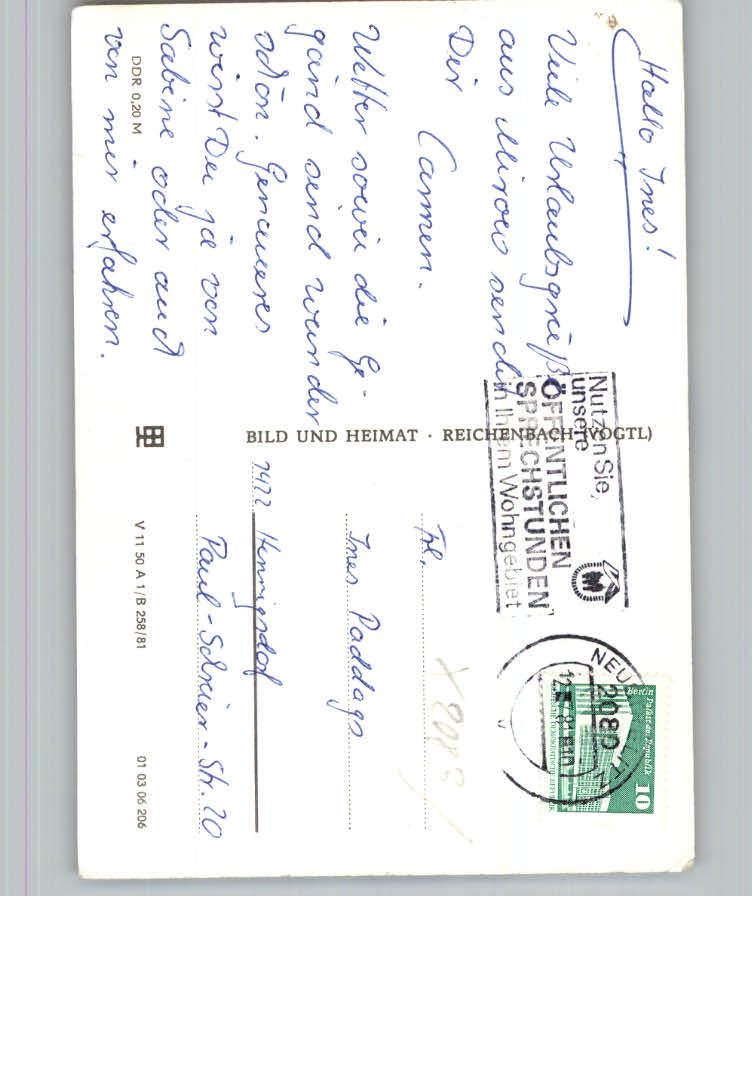 Hallo Ines!
Viele Urlaubsgrüße
aus Mirow sendet
Dir Carmen.
Wetter sowie die Ge-
gend sind wunder
schön. Genaueres
wirst Du ja von
Sabine oder auch
von mir erfahren.
DDR 0,20 M
BILD UND HEIMAT · REICHENBACH (VOGTL)
V 11 50 A 1/B 258/81
01 03 06 206
Nutzen Sie
unsere
ÖFFENTLICHEN
SPRECHSTUNDEN
in Ihrem Wohngebiet
NEU
2080
Berlin Palast der Republik
10
DEMOKRATISCHE REPUBLIK
Frl.
Ines Paddags
1422 Hennigsdorf
Paul-Schreier-Str. 20